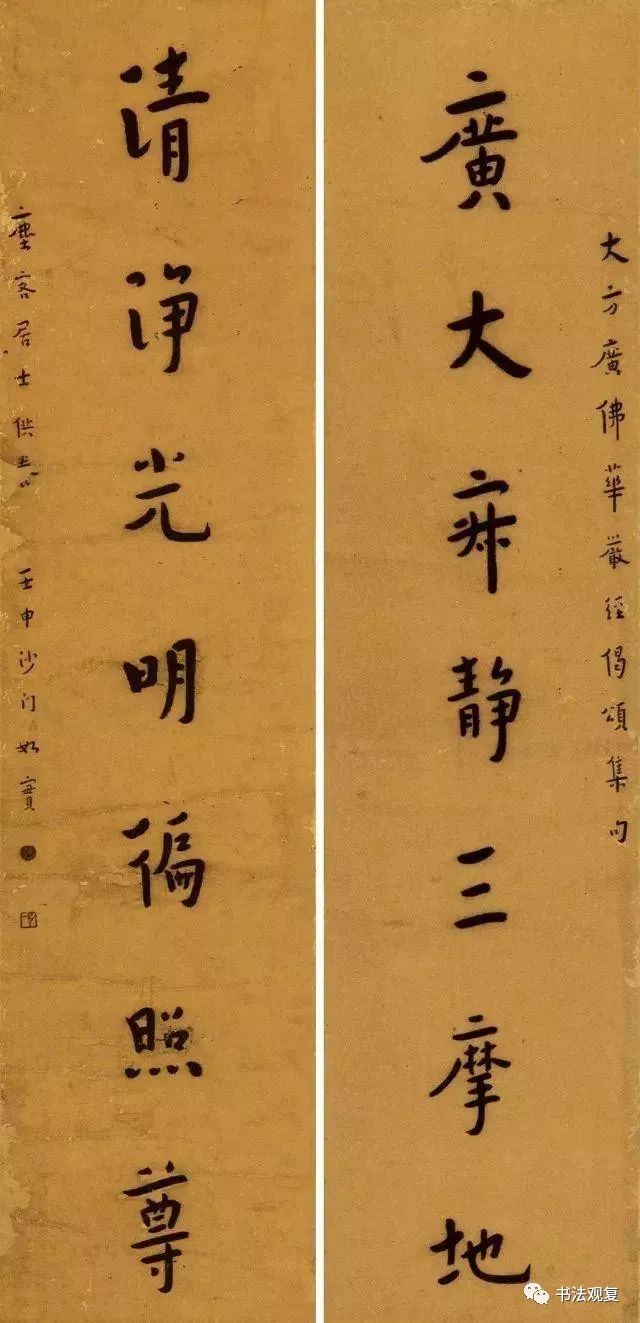 大方廣佛華嚴經偈頌集句
廣大寂靜三摩地
清淨光明徧照尊
塵客居士供養 壬申沙门如實
书法观复